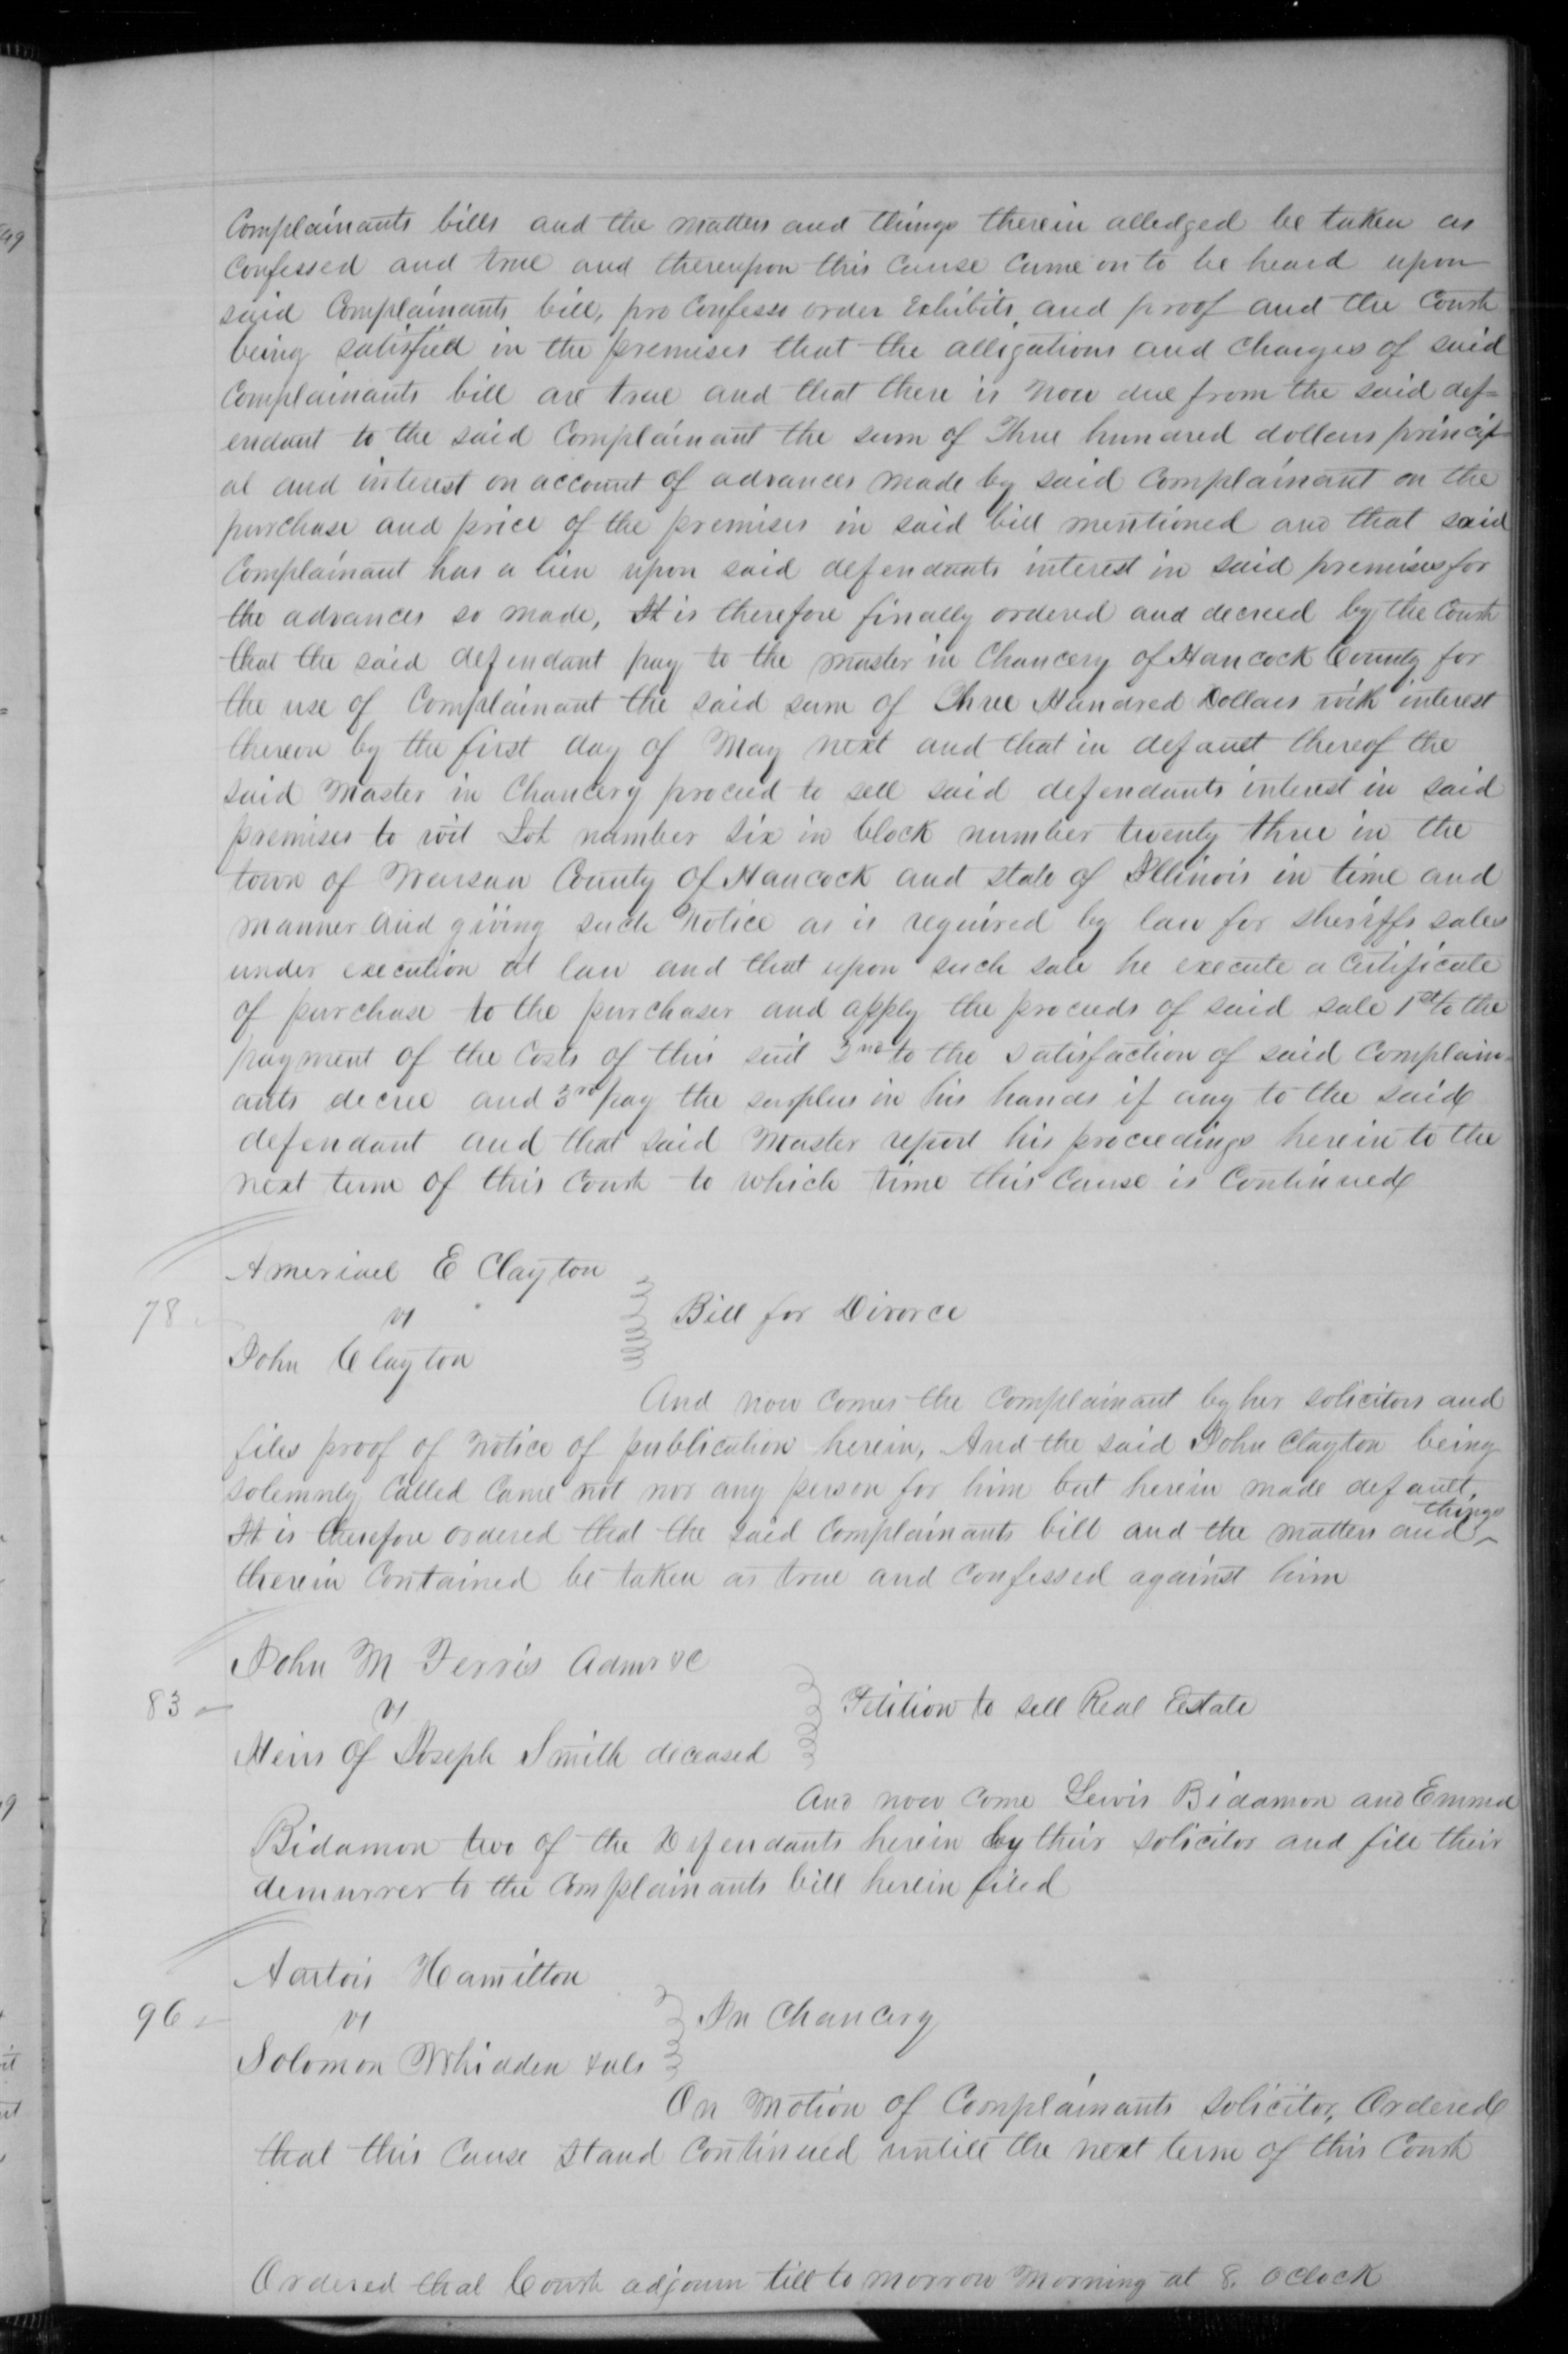 Complainants bills and the matters and things therein alledged be taken as
confessed and true and thereupon this cause came on to be heard upon
said Complainants bill, pro confesso order Exhibits, and proof and the Court
being satisfied in the premises that the alligations and charges of said
complainants bill are true and that there is now due from the said def=
endant to the said Complainant the sum of Three hundred dollars princip
al and interest on account of advances made by said complainant on the
purchase and price of the premises in said bill mentioned and that said
Complainant has a lien upon said defendants interest in said premises for
the advances so made, It is therefore finally ordered and decreed by the Court
that the said defendant pay to the master in Chancery of Hancock County for
the use of Complainant the said sum of Three Hundred Dollars with interest
thereon by the first day of May next and that in default thereof the
said Master in Chancery proceed to sell said defendants interest in said
premises to wit Lot number six in block number twenty three in the
town of Warsaw County of Hancock and state of Illinois in time and
manner and giving such notice as is required by law for sheriffs sales
under execution at law and that upon such sale he execute a certificate
of purchase to the purchaser and apply the proceeds of said sale 1st to the
payment of the costs of this suit 2nd to the satisfaction of said Complain=
ants decree and 3rd pay the surplus in his hands if any to the said
defendant and that said Master report his proceedings herein to the
next term of this Court to which time this cause is Continued
E Clayton
78 vs Bill for Divorce
John Clayton
And now comes the complainant by her solicitors and
files proof of notice of publication herein, And the said John Clayton being
solemnly called came not nor any person for him but herein made default,
It is therefore ordered that the said Complainants bill and the matters and things
therein contained be taken as true and confessed against him
John M Ferris Admr &c
83 vs Petition to sell Real Estate
Heirs of Joseph Smith deceased
And now come Lewis Bidamon and Emma
Bidamon two of the Defendants herein by their solicitor and file their
demurrer to the complainants bill herein filed
Artois Hamilton
96 vs In Chancery
Solomon Whidden &als
On Motion of Complainants solicitor, Ordered
that this cause stand continued untill the next term of this Court
Ordered that Court adjourn till to morrow morning at 8. oclock